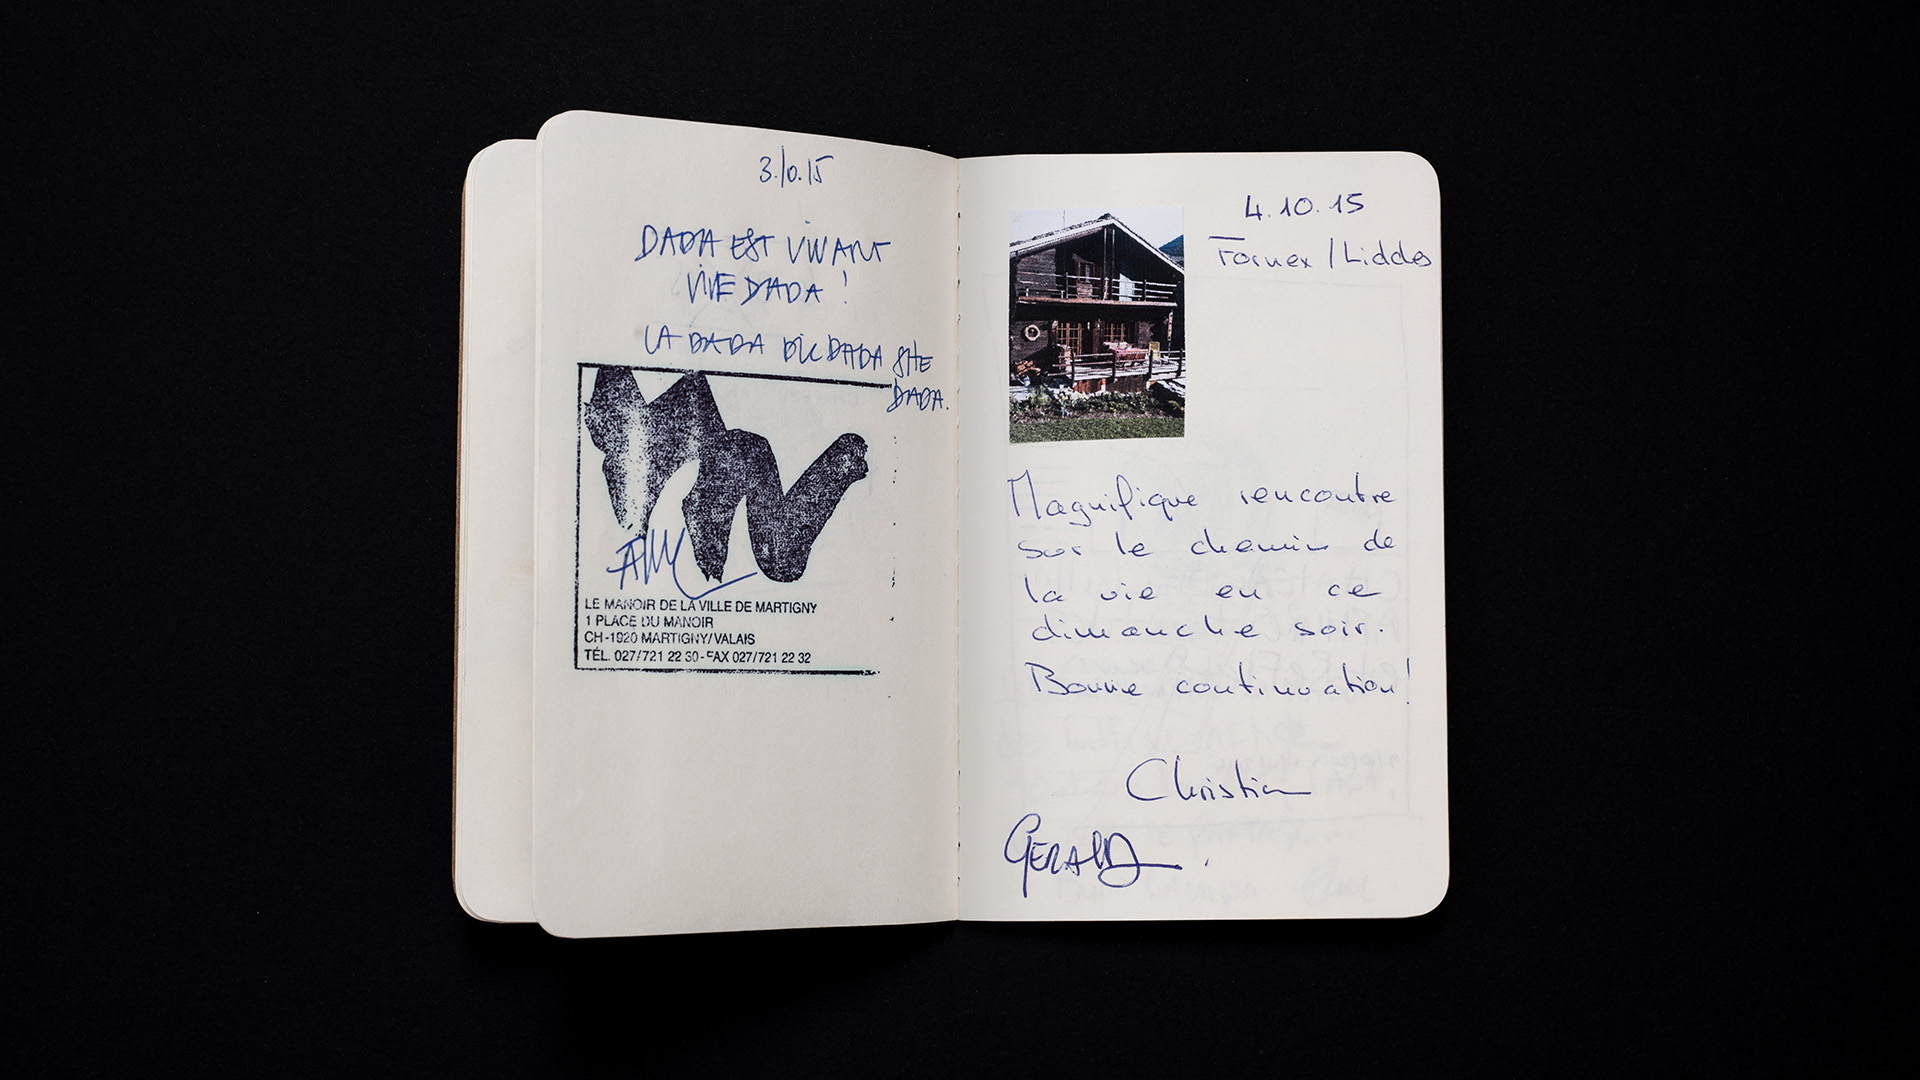 3.10.15
DADA EST VIVANT
VIVE DADA !
LA DADA DU DADA SHE
DADA.
LE MANOIR DE LA VILLE DE MARTIGNY
1 PLACE DU MANOIR
CH-1920 MARTIGNY/VALAIS
TÉL. 027/721 22 30-FAX 027/721 22 32
4.10.15
Fornex / Liddes
Magnifique rencontre
sur le chemin de
la vie en ce
dimanche soir.
Bonne continuation!
Christian
GERALD